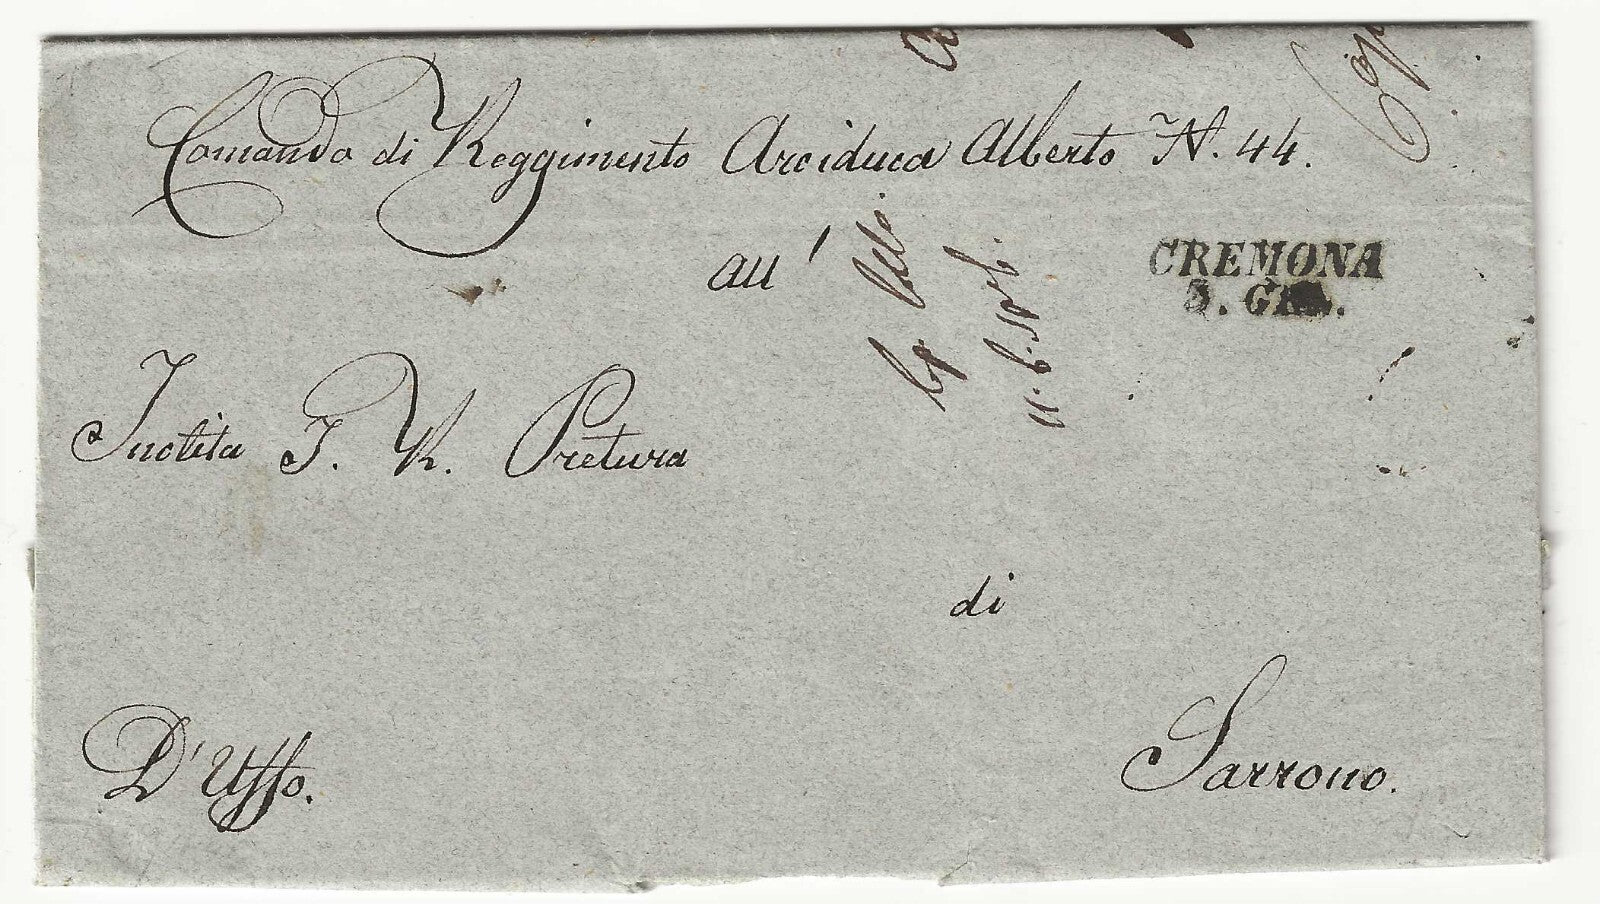 Comando di Reggimento Arciduca Alberto N. 44.
all'
CREMONA
3. GEN.
Inclita I. R. Pretura
di
Sarrono.
D'Uffo.